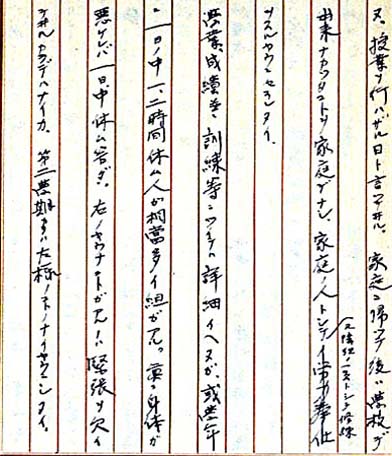 又、授業ヲ行ハザル日ト言ツテヰル。家庭ニ帰ツテ後ハ学校デ
出来ナカツタコトヲ家庭デナシ、家庭ノ人トシテノ労力奉仕
又隣組ノ一人トシテノ修練
ヲスルヤウニセラレタイ。
学業成績、訓練等ニツイテハ詳細イヘヌガ、或学年
ニ一日ノ中一、二時間休ム人ガ相當多イ組ガアル。真ニ身体ガ
悪ケレバ一日中休ム筈ダ。右ノヤウナコトガアルノハ緊張ヲ欠イ
テヰルカラデハナイカ。第二学期カラハ左様ノコトノナイヤウニシタイ。